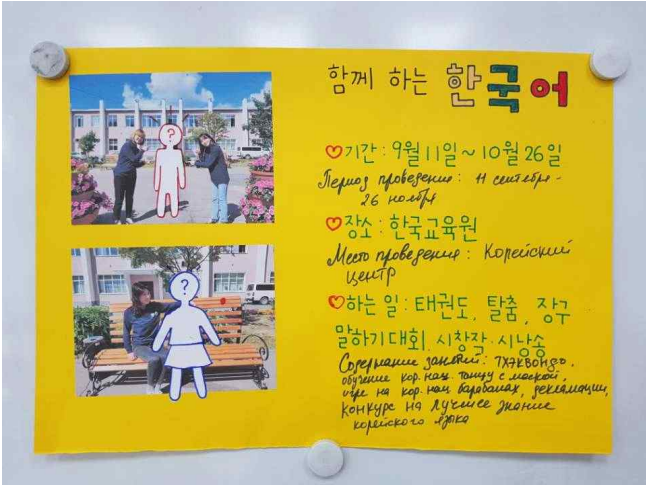 함께 하는 한국어
♡기간 : 9월 11일 ~ 10월 26일
Период проведения : 11 сентября -
26 ноября
♡장소 : 한국교육원
Место проведения : Корейский
центр
♡하는 일 : 태권도, 탈춤, 장구
말하기대회, 시창작·시낭송
Содержание занятий: тхэквондо,
обучение кор. нац. танцу с маской,
игре на кор. нац барабанах, декламации,
конкурс на лучшее знание
корейского языка
?
?